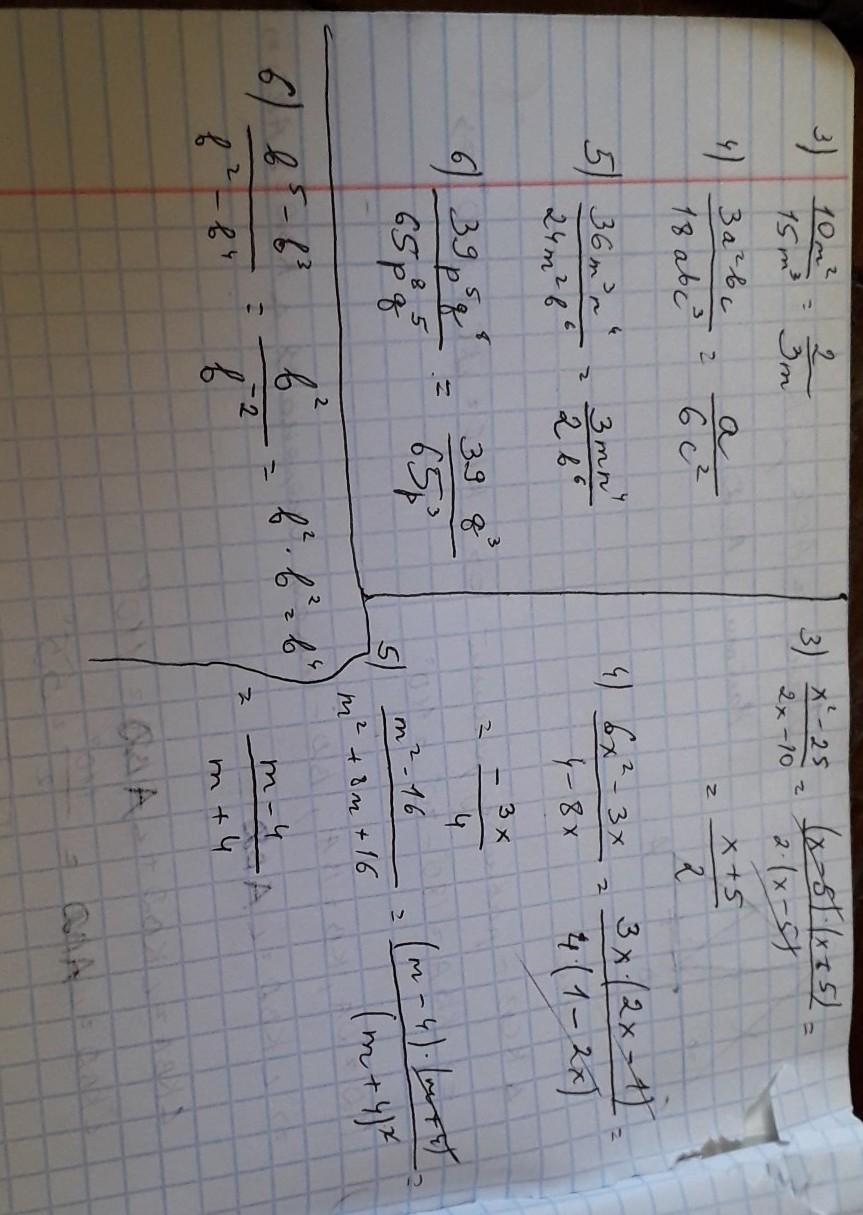 3) 10m²/15m³ = 2/3m
4) 3a²bc/18abc³ = a/6c²
5) 36m³n⁴/24m²b⁶ = 3mn⁴/2b⁶
6) 39p⁵q⁸/65p⁸q⁵ = 39q³/65p³
6) b⁵-b³/b²-b⁴ = b²/b⁻² = b²·b² = b⁴
3) x²-25/2x-10 = (x-5)·(x+5)/2·(x-5) =
= x+5/2
4) 6x²-3x/4-8x = 3x·(2x-1)/4·(1-2x) =
= -3x/4
5) m²-16/m²+8m+16 = (m-4)·(m+4)/(m+4)² =
= m-4/m+4